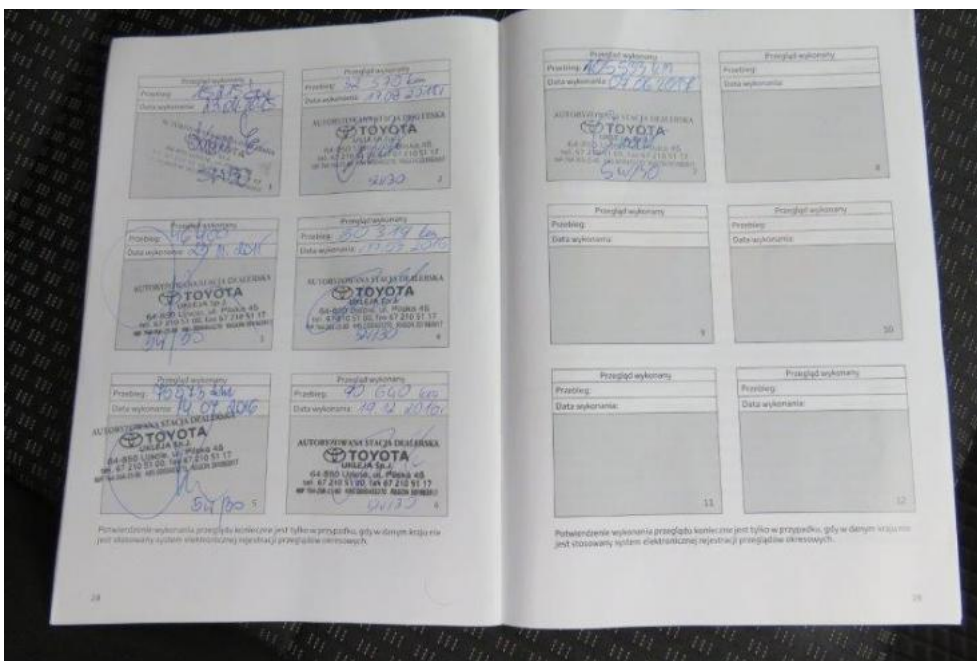 Przegląd wykonany
Przebieg:
Data wykonania:
TOYOTA
5W/30
1
Przegląd wykonany
Przebieg: 32 570 km
Data wykonania: 17.08.2015
AUTORYZOWANA STACJA DEALERSKA
TOYOTA
UKLEJA Sp.J.
5W30
2
Przegląd wykonany
Przebieg: 46400
Data wykonania: 29.11.2015
AUTORYZOWANA STACJA DEALERSKA
TOYOTA
UKLEJA Sp.J.
64-850 Ujście, ul. Pilska 45
tel. 67 210 51 00, fax 67 210 51 17
5W/30
3
Przegląd wykonany
Przebieg: 60 319 km
Data wykonania:
AUTORYZOWANA STACJA DEALERSKA
TOYOTA
UKLEJA Sp.J.
64-850 Ujście, ul. Pilska 45
tel. 67 210 51 00, fax 67 210 51 17
5W30
4
Przegląd wykonany
Przebieg:
Data wykonania: 14.07.2016
AUTORYZOWANA STACJA DEALERSKA
TOYOTA
UKLEJA Sp.J.
64-850 Ujście, ul. Pilska 45
tel. 67 210 51 00, fax 67 210 51 17
5W/30
5
Przegląd wykonany
Przebieg: 90 640 km
Data wykonania: 19.12.2016
AUTORYZOWANA STACJA DEALERSKA
TOYOTA
UKLEJA Sp.J.
64-850 Ujście, ul. Pilska 45
tel. 67 210 51 00, fax 67 210 51 17
5W/30
6
Potwierdzenie wykonania przeglądu konieczne jest tylko w przypadku, gdy w danym kraju nie
jest stosowany system elektronicznej rejestracji przeglądów okresowych.
28
Przegląd wykonany
Przebieg: 105 555 km
Data wykonania: 07.06.2017
AUTORYZOWANA STACJA DEALERSKA
TOYOTA
5W/30
7
Przegląd wykonany
Przebieg:
Data wykonania:
8
Przegląd wykonany
Przebieg:
Data wykonania:
9
Przegląd wykonany
Przebieg:
Data wykonania:
10
Przegląd wykonany
Przebieg:
Data wykonania:
11
Przegląd wykonany
Przebieg:
Data wykonania:
12
Potwierdzenie wykonania przeglądu konieczne jest tylko w przypadku, gdy w danym kraju nie
jest stosowany system elektronicznej rejestracji przeglądów okresowych.